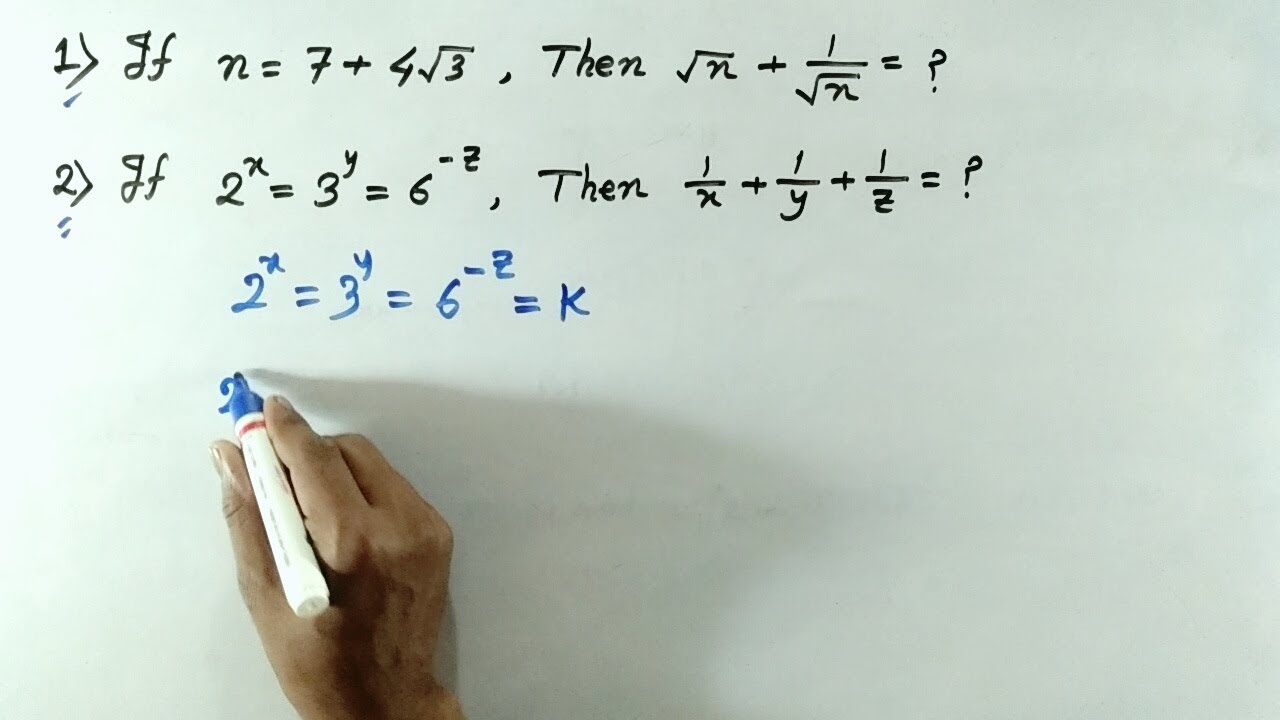 1) If n = 7 + 4√3 , Then √n + 1/√n = ?
2) If 2^x = 3^y = 6^-z , Then 1/x + 1/y + 1/z = ?
2^x = 3^y = 6^-z = K
2